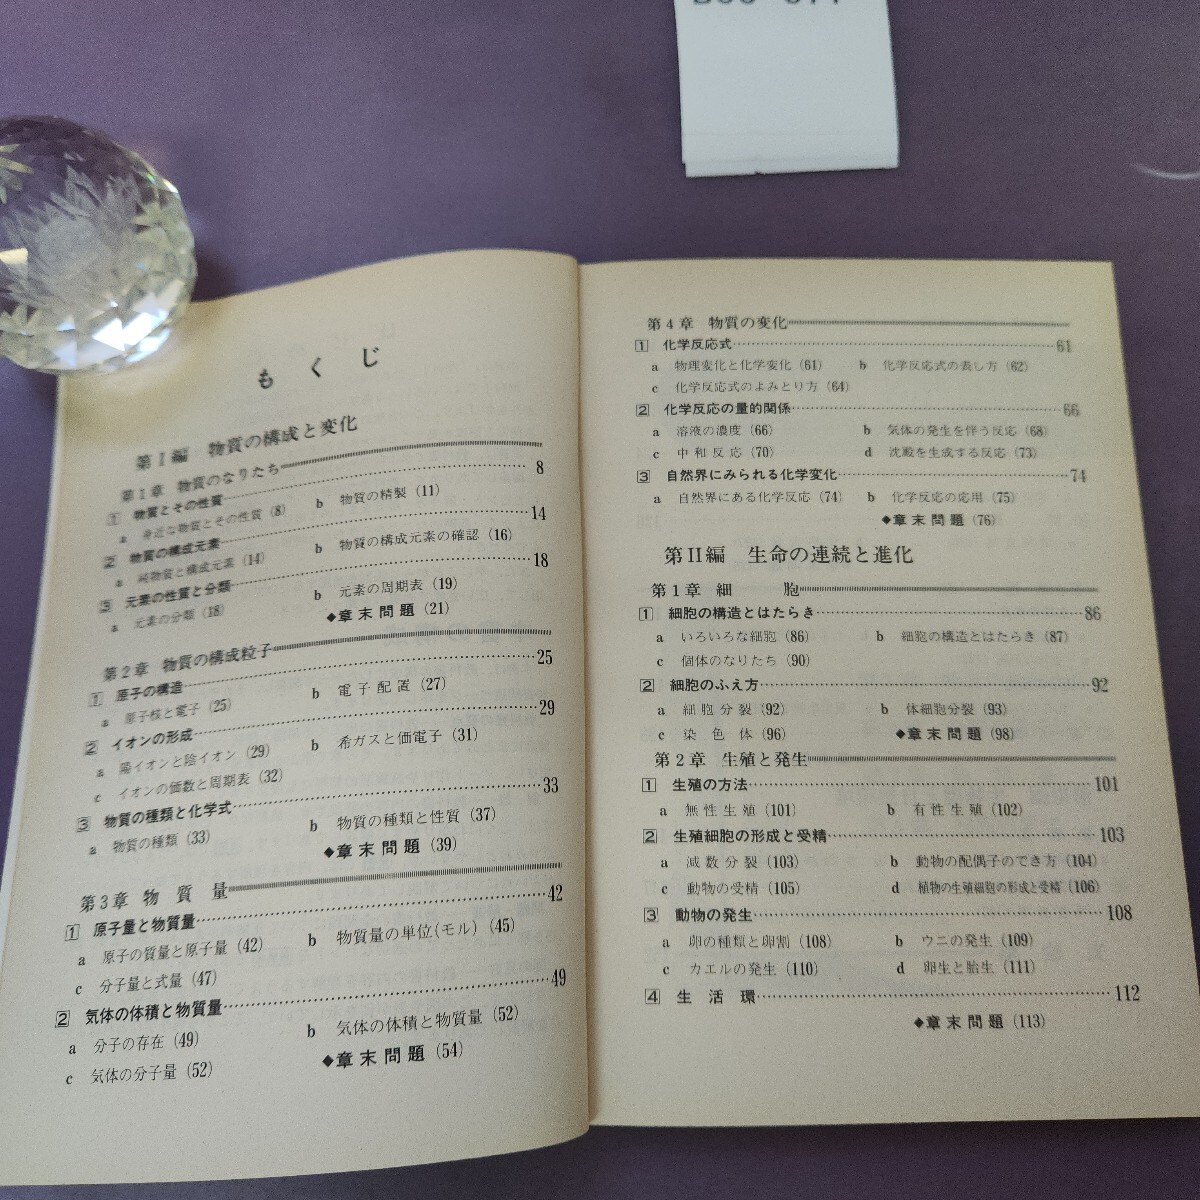 もくじ
第I編 物質の構成と変化
第1章 物質のなりたち
1 物質とその性質 8
a 身近な物質とその性質 (8) b 物質の精製 (11)
2 物質の構成元素 14
a 純物質と構成元素 (14) b 物質の構成元素の確認 (16)
3 元素の性質と分類 18
a 元素の分類 (18) b 元素の周期表 (19)
◆章末問題 (21)
第2章 物質の構成粒子
1 原子の構造 25
a 原子核と電子 (25) b 電子配置 (27)
2 イオンの形成 29
a 陽イオンと陰イオン (29) b 希ガスと価電子 (31)
c イオンの価数と周期表 (32)
3 物質の種類と化学式 33
a 物質の種類 (33) b 物質の種類と性質 (37)
◆章末問題 (39)
第3章 物質量
1 原子量と物質量 42
a 原子の質量と原子量 (42) b 物質量の単位(モル) (45)
c 分子量と式量 (47)
2 気体の体積と物質量 49
a 分子の存在 (49) b 気体の体積と物質量 (52)
c 気体の分子量 (52) ◆章末問題 (54)
第4章 物質の変化
1 化学反応式 61
a 物理変化と化学変化 (61) b 化学反応式の表し方 (62)
c 化学反応式のよみとり方 (64)
2 化学反応の量的関係 66
a 溶液の濃度 (66) b 気体の発生を伴う反応 (68)
c 中和反応 (70) d 沈殿を生成する反応 (73)
3 自然界にみられる化学変化 74
a 自然界にある化学反応 (74) b 化学反応の応用 (75)
◆章末問題 (76)
第II編 生命の連続と進化
第1章 細胞
1 細胞の構造とはたらき 86
a いろいろな細胞 (86) b 細胞の構造とはたらき (87)
c 個体のなりたち (90)
2 細胞のふえ方 92
a 細胞分裂 (92) b 体細胞分裂 (93)
c 染色体 (96) ◆章末問題 (98)
第2章 生殖と発生
1 生殖の方法 101
a 無性生殖 (101) b 有性生殖 (102)
2 生殖細胞の形成と受精 103
a 減数分裂 (103) b 動物の配偶子のでき方 (104)
c 動物の受精 (105) d 植物の生殖細胞の形成と受精 (106)
3 動物の発生 108
a 卵の種類と卵割 (108) b ウニの発生 (109)
c カエルの発生 (110) d 卵生と胎生 (111)
4 生活環 112
◆章末問題 (113)